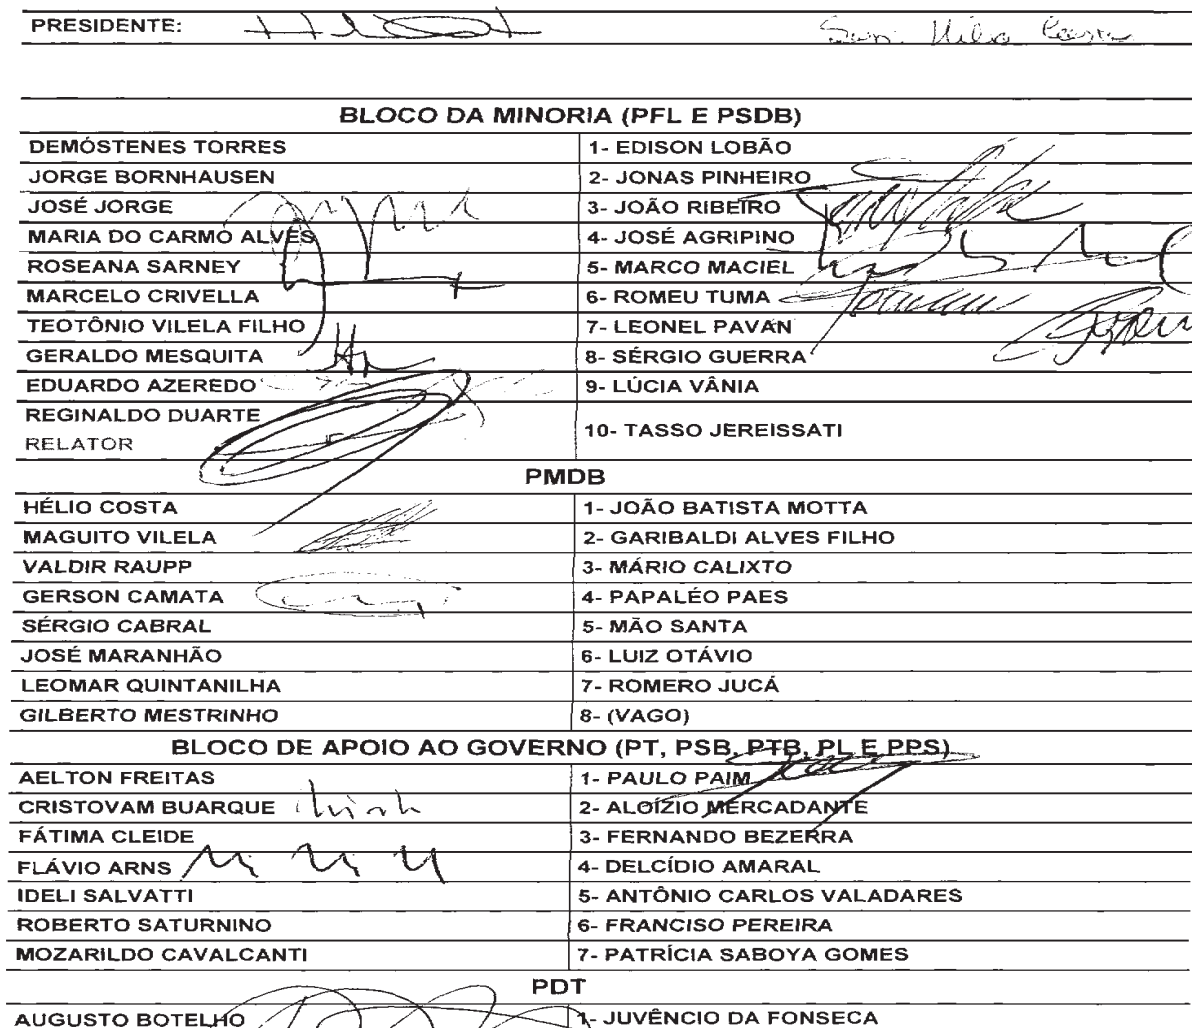 PRESIDENTE: Sen. Hélio Costa
BLOCO DA MINORIA (PFL E PSDB)
DEMÓSTENES TORRES 1- EDISON LOBÃO
JORGE BORNHAUSEN 2- JONAS PINHEIRO
JOSÉ JORGE 3- JOÃO RIBEIRO
MARIA DO CARMO ALVES 4- JOSÉ AGRIPINO
ROSEANA SARNEY 5- MARCO MACIEL
MARCELO CRIVELLA 6- ROMEU TUMA
TEOTÔNIO VILELA FILHO 7- LEONEL PAVAN
GERALDO MESQUITA 8- SÉRGIO GUERRA
EDUARDO AZEREDO 9- LÚCIA VÂNIA
REGINALDO DUARTE
RELATOR 10- TASSO JEREISSATI
PMDB
HÉLIO COSTA 1- JOÃO BATISTA MOTTA
MAGUITO VILELA 2- GARIBALDI ALVES FILHO
VALDIR RAUPP 3- MÁRIO CALIXTO
GERSON CAMATA 4- PAPALÉO PAES
SÉRGIO CABRAL 5- MÃO SANTA
JOSÉ MARANHÃO 6- LUIZ OTÁVIO
LEOMAR QUINTANILHA 7- ROMERO JUCÁ
GILBERTO MESTRINHO 8- (VAGO)
BLOCO DE APOIO AO GOVERNO (PT, PSB, PTB, PL E PPS)
AELTON FREITAS 1- PAULO PAIM
CRISTOVAM BUARQUE 2- ALOÍZIO MERCADANTE
FÁTIMA CLEIDE 3- FERNANDO BEZERRA
FLÁVIO ARNS 4- DELCÍDIO AMARAL
IDELI SALVATTI 5- ANTÔNIO CARLOS VALADARES
ROBERTO SATURNINO 6- FRANCISO PEREIRA
MOZARILDO CAVALCANTI 7- PATRÍCIA SABOYA GOMES
PDT
AUGUSTO BOTELHO 1- JUVÊNCIO DA FONSECA